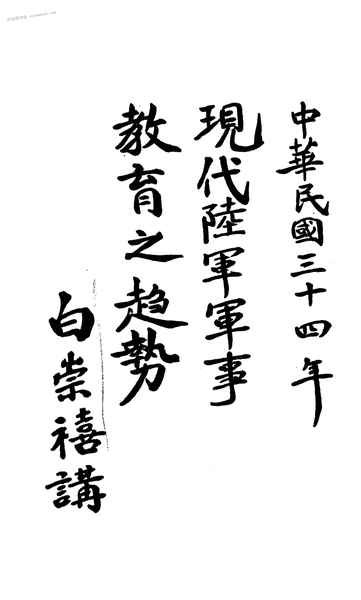 中華民國三十四年
現代陸軍軍事
教育之趨勢
白崇禧講